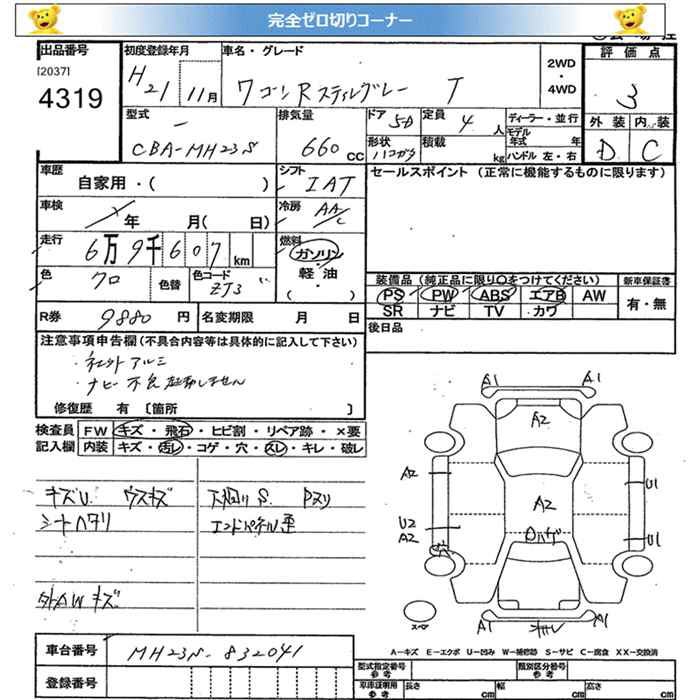 完全ゼロ切りコーナー
出品番号
[2037]
4319
初度登録年月
H21 11月
車名・グレード
ワゴンRスティングレー T
2WD
・
4WD
評価点
3
外装 内装
D C
型式
CBA-MH23S
排気量
660 cc
ドア 5D
形状 ハコガタ
定員 4 人
積載 kg
ディーラー・並行
モデル
年式 年
ハンドル 左・右
車歴
自家用・( )
シフト
IAT
セールスポイント (正常に機能するものに限ります)
車検
年 月( 日)
冷房
AA/C
走行
6万9千607 km
燃料
ガソリン
・
軽油
( )
色
クロ
色替
色コード
ZJ3
装備品(純正品に限り○をつけてください)
新車保証書
PS PW ABS エアB AW
SR ナビ TV カワ
有・無
R券 9880 円
名変期限 月 日
後日品
注意事項申告欄(不具合内容等は具体的に記入して下さい)
・社外アルミ
・ナビ不良起動しません
修復歴 有 〔箇所 〕
検査員
記入欄
FW キズ・飛石・ヒビ割・リペア跡・×要
内装 キズ・汚レ・コゲ・穴・スレ・キレ・破レ
キズU. ウスキズ
シートヘタリ
外AWキズ
下廻りS. Pヌリ
エンドパネル歪
A1 A1
A2
A2 U1
A2
U2
A2
ロハゲ U1
A1 A1
スペア
A-キズ E-エクボ U-凹み W-補修跡 S-サビ C-腐食 XX-交換済
車台番号 MH23S-832041
登録番号
型式指定番号
参考
類別区分番号
参考
車庫証明用
参考
長さ cm 幅 cm 高さ cm